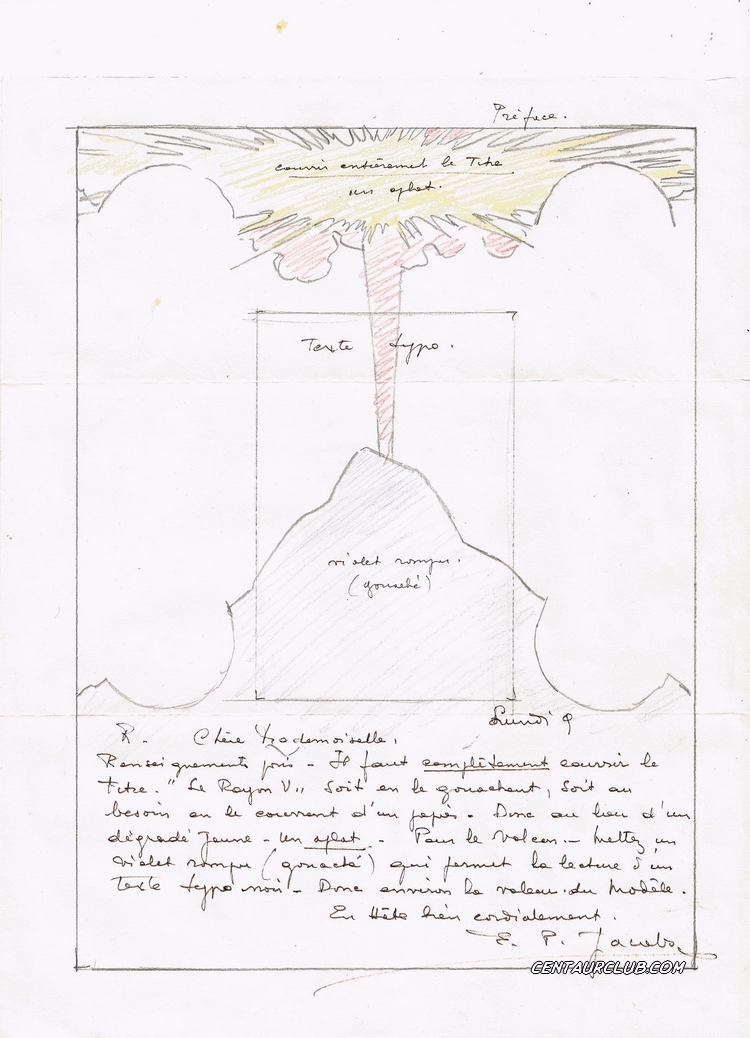 Préface.
couvrir entièrement le Titre
un aplat.
Texte typo.
violet rompu.
(gouaché)
Lundi 9
R. Chère Mademoiselle,
Renseignements pris - Il faut complètement couvrir le
titre. "Le Rayon U" Soit en le gouachant, soit au
besoin en le couvrant d'un papier - Donc au lieu d'un
dégradé Jaune - un aplat - Pour le Volcan - Mettez un
violet rompu (gouaché) qui permet la lecture d'un
Texte typo noir - Donc environ la valeur du Modèle.
En Hâte bien cordialement.
E. P. Jacobs
CENTAURCLUB.COM